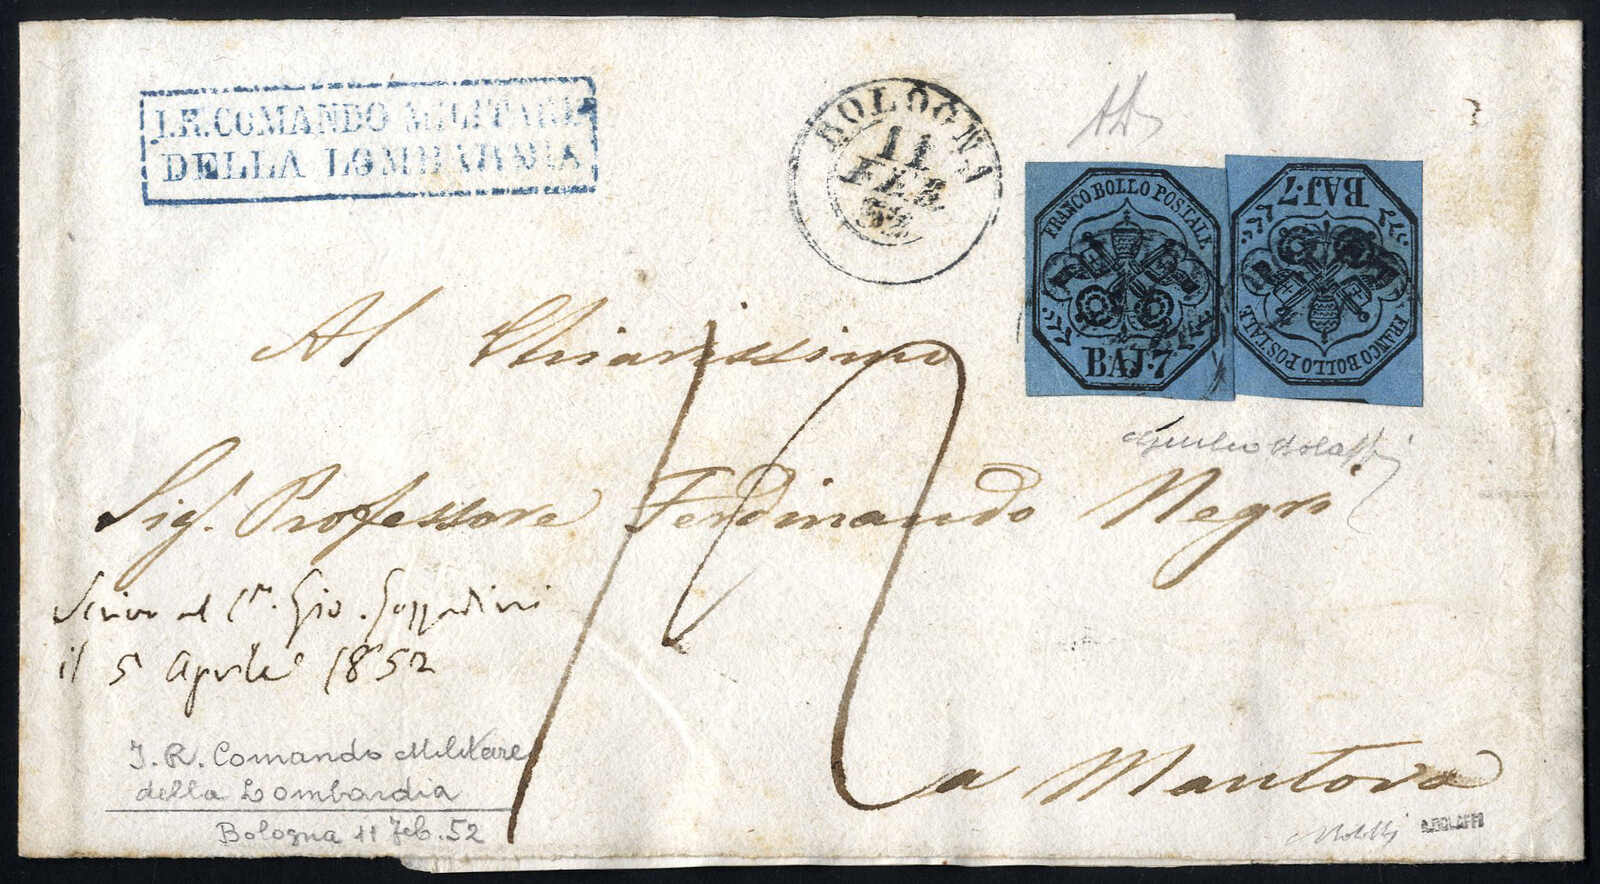 I.R. COMANDO MILITARE
DELLA LOMBARDIA
BOLOGNA
11
FEB
52
FRANCO BOLLO POSTALE
BAJ·7
BAJ·7
FRANCO BOLLO POSTALE
Al Chiarissimo
Sig.r Professore Ferdinando Negri
al C. Gio. Gozzadini
il 5 Aprile 1852
12
a Mantova
I. R. Comando Militare
della Lombardia
Bologna 11 Feb. 52
Giulio Bolaffi
A.BOLAFFI